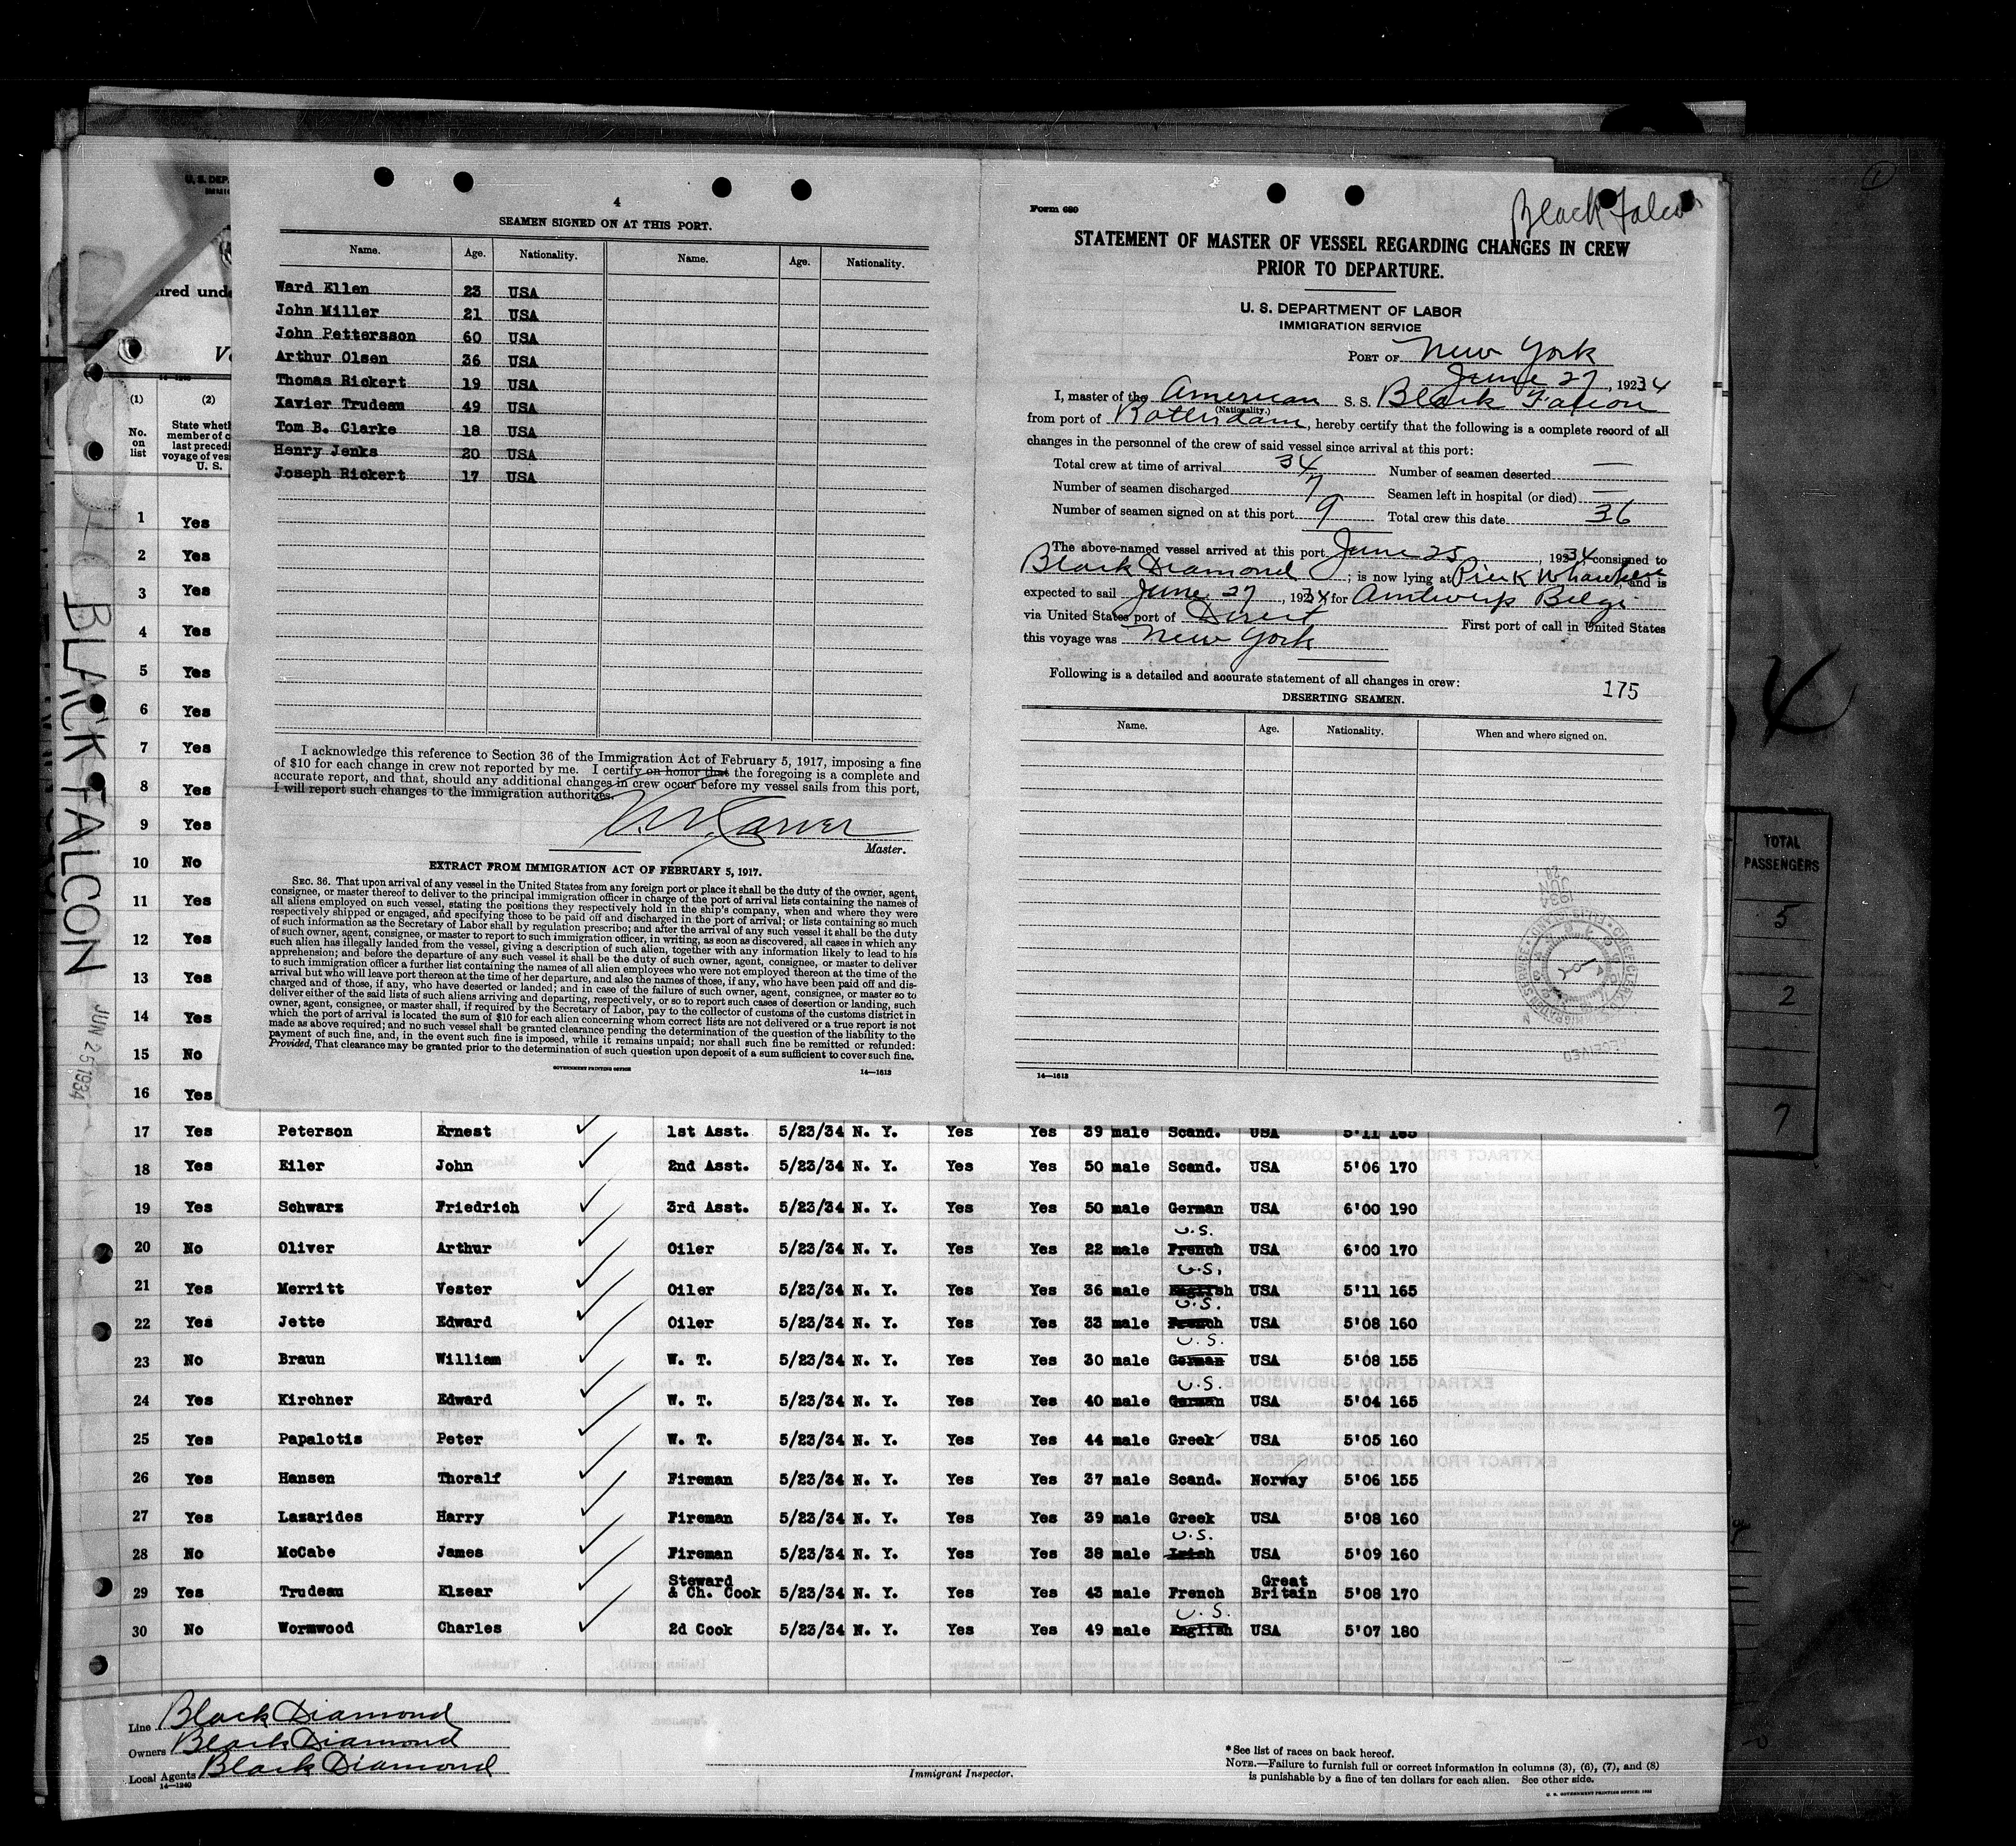 4
SEAMEN SIGNED ON AT THIS PORT.
Name. Age. Nationality. Name. Age. Nationality.
Ward Ellen 23 USA
John Miller 21 USA
John Pettersson 60 USA
Arthur Olsen 36 USA
Thomas Rickert 19 USA
Xavier Trudeau 49 USA
Tom B. Clarke 18 USA
Henry Jenks 20 USA
Joseph Rickert 17 USA
I acknowledge this reference to Section 36 of the Immigration Act of February 5, 1917, imposing a fine
of $10 for each change in crew not reported by me. I certify on honor that the foregoing is a complete and
accurate report, and that, should any additional changes in crew occur before my vessel sails from this port,
I will report such changes to the immigration authorities.
Master.
EXTRACT FROM IMMIGRATION ACT OF FEBRUARY 5, 1917.
SEC. 36. That upon arrival of any vessel in the United States from any foreign port or place it shall be the duty of the owner, agent,
consignee, or master thereof to deliver to the principal immigration officer in charge of the port of arrival lists containing the names of
all aliens employed on such vessel, stating the positions they respectively hold in the ship's company, when and where they were
respectively shipped or engaged, and specifying those to be paid off and discharged in the port of arrival; or lists containing so much
of such information as the Secretary of Labor shall by regulation prescribe; and after the arrival of any such vessel it shall be the duty
of such owner, agent, consignee, or master to report to such immigration officer, in writing, as soon as discovered, all cases in which any
such alien has illegally landed from the vessel, giving a description of such alien, together with any information likely to lead to his
apprehension; and before the departure of any such vessel it shall be the duty of such owner, agent, consignee, or master to deliver
to such immigration officer a further list containing the names of all alien employees who were not employed thereon at the time of the
arrival but who will leave port thereon at the time of her departure, and also the names of those, if any, who have been paid off and dis-
charged and of those, if any, who have deserted or landed; and in case of the failure of such owner, agent, consignee, or master so to
deliver either of the said lists of such aliens arriving and departing, respectively, or so to report such cases of desertion or landing, such
owner, agent, consignee, or master shall, if required by the Secretary of Labor, pay to the collector of customs of the customs district in
which the port of arrival is located the sum of $10 for each alien concerning whom correct lists are not delivered or a true report is not
made as above required; and no such vessel shall be granted clearance pending the determination of the question of the liability to the
payment of such fine, and, in the event such fine is imposed, while it remains unpaid; nor shall such fine be remitted or refunded:
Provided, That clearance may be granted prior to the determination of such question upon deposit of a sum sufficient to cover such fine.
GOVERNMENT PRINTING OFFICE 14—1613
Form 689
Black Falcon
STATEMENT OF MASTER OF VESSEL REGARDING CHANGES IN CREW
PRIOR TO DEPARTURE.
U. S. DEPARTMENT OF LABOR
IMMIGRATION SERVICE
PORT OF New York
June 27, 1934
I, master of the American S. S. Black Falcon
(Nationality.)
from port of Rotterdam, hereby certify that the following is a complete record of all
changes in the personnel of the crew of said vessel since arrival at this port:
Total crew at time of arrival 34 Number of seamen deserted —
Number of seamen discharged 7 Seamen left in hospital (or died) —
Number of seamen signed on at this port 9 Total crew this date 36
The above-named vessel arrived at this port June 25, 1934, consigned to
Black Diamond; is now lying at Pier K Whawken and is
expected to sail June 27, 1934 for Antwerp Belgi
via United States port of Direct First port of call in United States
this voyage was New York
Following is a detailed and accurate statement of all changes in crew:
175
DESERTING SEAMEN.
Name. Age. Nationality. When and where signed on.
14—1613
TOTAL
PASSENGERS
5
2
7
4
1
BLACK FALCON
JUN 25 1934
U. S. DEP
14—1240
(1) (2)
No. on list
State wheth
member of c
last precedi
voyage of ves
U. S.
1 Yes
2 Yes
3 Yes
4 Yes
5 Yes
6 Yes
7 Yes
8 Yes
9 Yes
10 No
11 Yes
12 Yes
13 Yes
14 Yes
15 No
16 Yes
17 Yes Peterson Ernest 1st Asst. 5/23/34 N. Y. Yes Yes 39 male Scand. USA 5'11 185
18 Yes Eiler John 2nd Asst. 5/23/34 N. Y. Yes Yes 50 male Scand. USA 5'06 170
19 Yes Schwarz Friedrich 3rd Asst. 5/23/34 N. Y. Yes Yes 50 male German USA 6'00 190
20 No Oliver Arthur Oiler 5/23/34 N. Y. Yes Yes 22 male French U.S. USA 6'00 170
21 Yes Merritt Vester Oiler 5/23/34 N. Y. Yes Yes 36 male English U.S. USA 5'11 165
22 Yes Jette Edward Oiler 5/23/34 N. Y. Yes Yes 33 male French U.S. USA 5'08 160
23 No Braun William W. T. 5/23/34 N. Y. Yes Yes 30 male German U.S. USA 5'08 155
24 Yes Kirchner Edward W. T. 5/23/34 N. Y. Yes Yes 40 male German U.S. USA 5'04 165
25 Yes Papalotis Peter W. T. 5/23/34 N. Y. Yes Yes 44 male Greek USA 5'05 160
26 Yes Hansen Thoralf Fireman 5/23/34 N. Y. Yes Yes 37 male Scand. Norway 5'06 155
27 Yes Lazarides Harry Fireman 5/23/34 N. Y. Yes Yes 39 male Greek USA 5'08 160
28 No McCabe James Fireman 5/23/34 N. Y. Yes Yes 38 male Irish U.S. USA 5'09 160
29 Yes Trudeau Elzear Steward & Ch. Cook 5/23/34 N. Y. Yes Yes 43 male French Great Britain 5'08 170
30 No Wormwood Charles 2d Cook 5/23/34 N. Y. Yes Yes 49 male English U.S. USA 5'07 180
Line Black Diamond
Owners Black Diamond
Local Agents Black Diamond
14—1240
Immigrant Inspector.
*See list of races on back hereof.
NOTE.—Failure to furnish full or correct information in columns (3), (6), (7), and (8)
is punishable by a fine of ten dollars for each alien. See other side.
U. S. GOVERNMENT PRINTING OFFICE